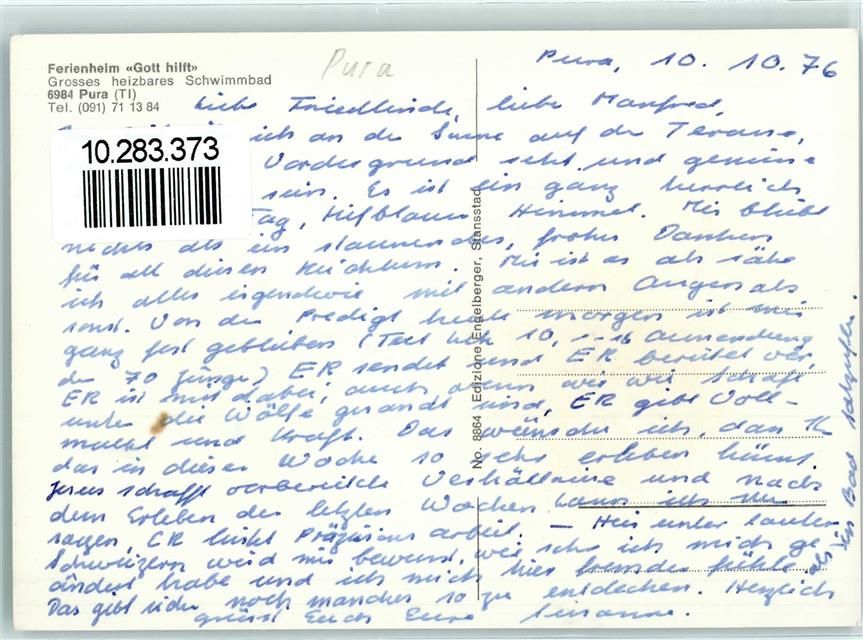 Ferienheim «Gott hilft»
Grosses heizbares Schwimmbad
6984 Pura (TI)
Tel. (091) 71 13 84
Pura
Pura, 10. 10. 76
Liebe Friedlinde, liebe Manfred,
ich an der Sonne auf der Terasse,
10.283.373
Vordergrund seht, und geniesse
sein. Es ist ein ganz herrlich
Tag, tiefblauer Himmel. Mir bleibt
nichts als ein staunendes, frohes Danken
für all diesen Reichtum. Mir ist es als sähe
ich alles irgendwie mit andern Augen als
sonst. Von der Predigt heute morgen ist mir
ganz fest geblieben (Text Luk 10, 1-16 Aussendung
der 70 Jünger) ER sendet und ER bereitet vor,
ER ist mit dabei, auch wenn wir wie Schafe
unter die Wölfe gesandt sind, ER gibt Voll-
macht und Kraft. Das wünsche ich, dass Ihr
das in dieser Woche so sehr erleben könnt.
Jesus schafft vorbereitete Verhältnisse und nach
dem Erleben der letzten Wochen kann ich nur
sagen, ER leistet Präzisionsarbeit. – Hier unter lauter
Schweizern wird mir bewusst, wie sehr ich mich ge-
ändert habe und ich mich hier fremder fühle als in Bad Salzuflen.
Das gibt sicher noch manches so zu entdecken. Herzlich
grüsst Euch Eure Susanne.
No. 8864 Edizione Engelberger, Stansstad